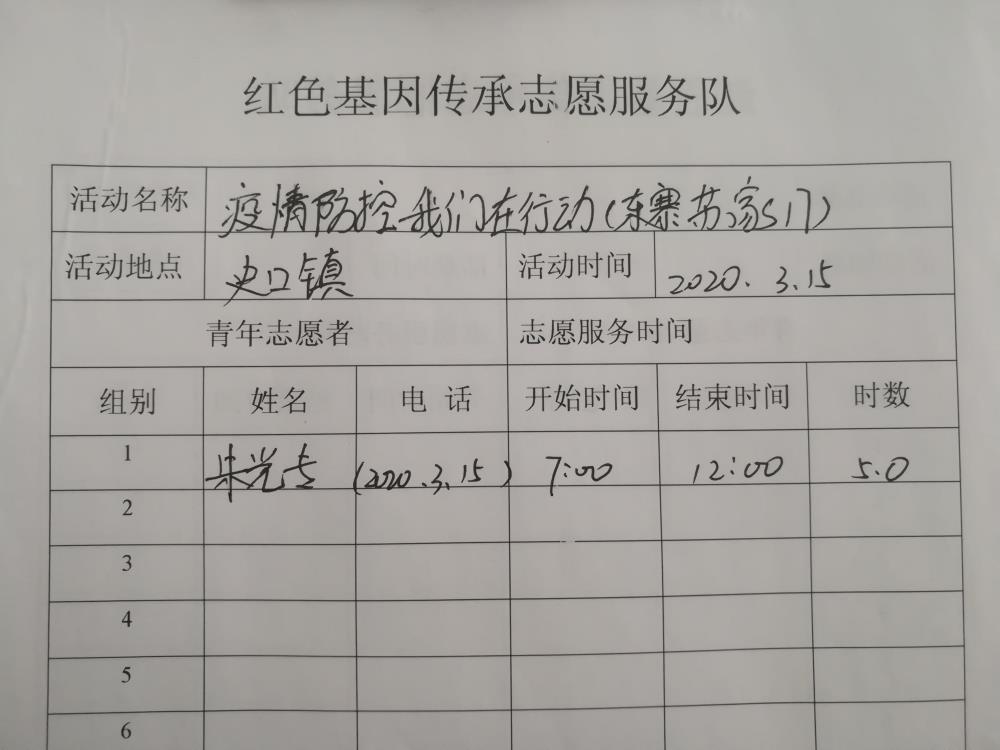 红色基因传承志愿服务队
活动名称 疫情防控我们在行动(东寨苏家51户)
活动地点 史口镇 活动时间 2020.3.15
青年志愿者 志愿服务时间
组别 姓名 电话 开始时间 结束时间 时数
1 朱光 (2020.3.15) 7:00 12:00 5.0
2
3
4
5
6